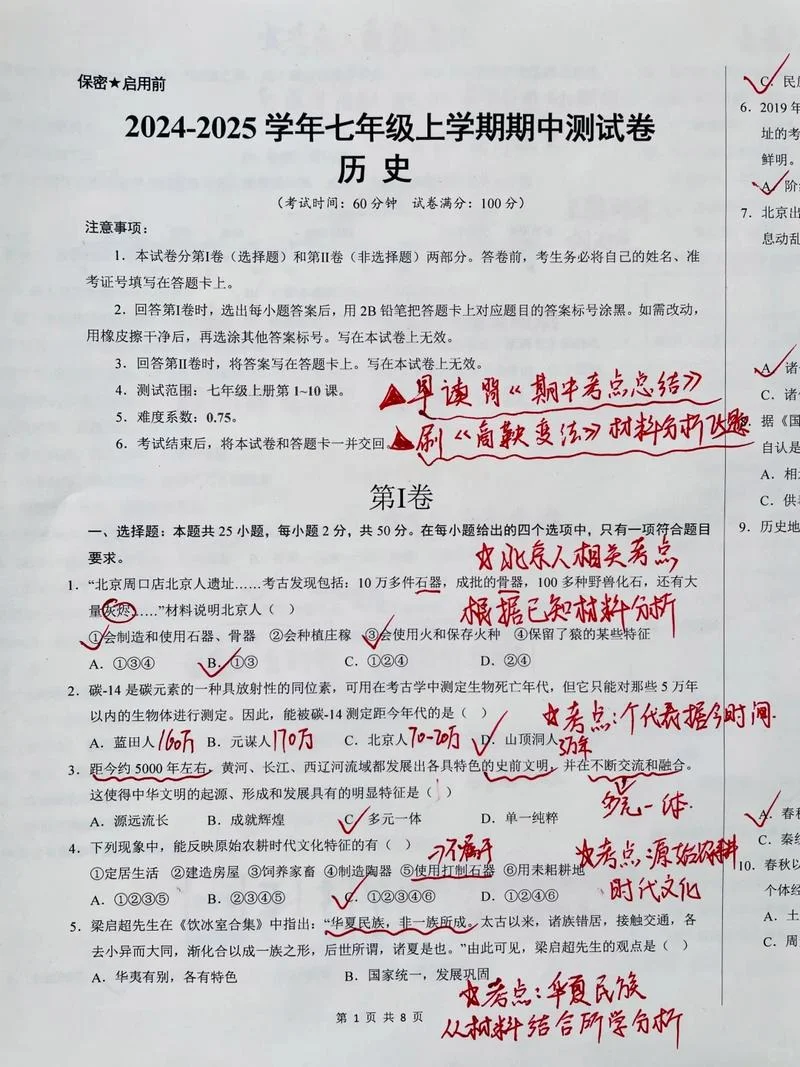 保密★启用前
2024-2025 学年七年级上学期期中测试卷
历 史
（考试时间：60 分钟 试卷满分：100 分）
注意事项：
1．本试卷分第Ⅰ卷（选择题）和第Ⅱ卷（非选择题）两部分。答卷前，考生务必将自己的姓名、准
考证号填写在答题卡上。
2．回答第Ⅰ卷时，选出每小题答案后，用 2B 铅笔把答题卡上对应题目的答案标号涂黑。如需改动，
用橡皮擦干净后，再选涂其他答案标号。写在本试卷上无效。
3．回答第Ⅱ卷时，将答案写在答题卡上。写在本试卷上无效。
4．测试范围：七年级上册第 1~10 课。
▲早读背《期中考点总结》
5．难度系数：0.75。
6．考试结束后，将本试卷和答题卡一并交回。
▲刷《商鞅变法》材料分析题
第Ⅰ卷
一、选择题：本题共 25 小题，每小题 2 分，共 50 分。在每小题给出的四个选项中，只有一项符合题目
要求。
☆北京人相关考点
1．“北京周口店北京人遗址……考古发现包括：10 万多件石器，成批的骨器，100 多种野兽化石，还有大
量灰烬……”材料说明北京人（ ）
根据已知材料分析
①会制造和使用石器、骨器 ②会种植庄稼 ③会使用火和保存火种 ④保留了猿的某些特征
A．①③④ B．①③ C．①②④ D．②④
2．碳-14 是碳元素的一种具放射性的同位素，可用在考古学中测定生物死亡年代，但它只能对那些 5 万年
以内的生物体进行测定。因此，能被碳-14 测定距今年代的是（ ）
☆考点：个代表据今时间
A．蓝田人 160万 B．元谋人 170万 C．北京人 70-20万 D．山顶洞人 3万年
3．距今约 5000 年左右，黄河、长江、西辽河流域都发展出各具特色的史前文明，并在不断交流和融合。
这使得中华文明的起源、形成和发展具有的明显特征是（ ）
多元一体
A．源远流长 B．成就辉煌 C．多元一体 D．单一纯粹
4．下列现象中，能反映原始农耕时代文化特征的有（ ）
不属于
☆考点 源始农耕
时代文化
①定居生活 ②建造房屋 ③饲养家畜 ④制造陶器 ⑤使用打制石器 ⑥用耒耜耕地
A．①②③⑤ B．②③④⑤ C．①②③④⑥ D．①②④⑥
5．梁启超先生在《饮冰室合集》中指出：“华夏民族，非一族所成。太古以来，诸族错居，接触交通，各
去小异而大同，渐化合以成一族之形，后世所谓，诸夏是也。”由此可见，梁启超先生的观点是（ ）
A．华夷有别，各有特色 B．国家统一，发展巩固
☆考点：华夏民族
从材料结合所学分析
第 1 页 共 8 页
C．民
6．2019 年
址的考
鲜明。
A．阶
7．北京出
息动乱
A．诸
C．诸
据《国
自认是
A．相
C．供
9．历史地
A．春秋
C．秦
10．春秋以
个体经
A．土
C．周